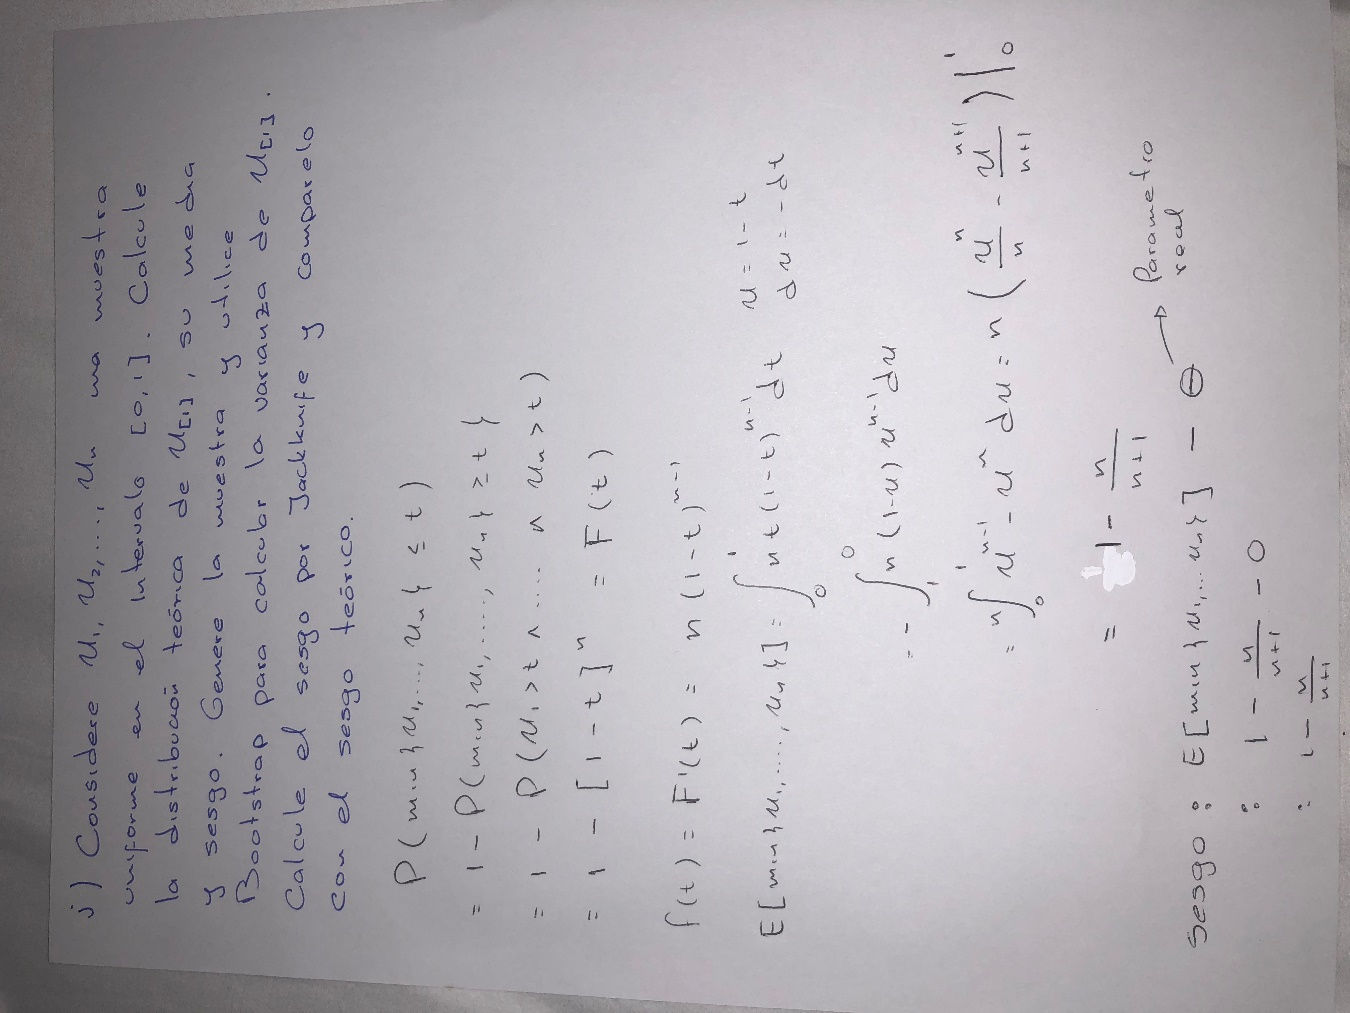 j) Considere U₁, U₂,..., Uₙ una muestra
uniforme en el intervalo [0,1]. Calcule
la distribución teórica de U[1], su media
y sesgo. Genere la muestra y utilice
Bootstrap para calcular la varianza de U[1].
Calcule el sesgo por Jackknife y comparelo
con el sesgo teórico.
P(min{U₁,...., Uₙ} ≤ t)
= 1 - P(min{U₁,....., Uₙ} ≥ t}
= 1 - P(U₁>t ∧ .... ∧ Uₙ>t)
= 1 - [1-t]ⁿ = F(t)
f(t) = F'(t) = n(1-t)ⁿ⁻¹
E[min{U₁,....,Uₙ}] = ∫₀¹ n t (1-t)ⁿ⁻¹ dt u = 1-t
du = -dt
= - ∫₁⁰ n (1-u) uⁿ⁻¹ du
= n ∫₀¹ uⁿ⁻¹ - uⁿ du = n ( uⁿ/n - uⁿ⁺¹/n+1 ) |₀¹
= 1 - n/n+1
Sesgo : E[min{U₁,...Uₙ}] - θ → Parametro
real
: 1 - n/n+1 - 0
: 1 - n/n+1